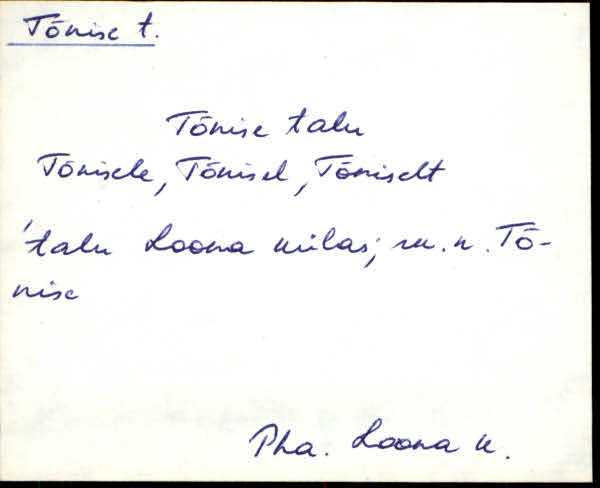 Tõnise t.
Tõnise talu
Tõnisele, Tõnisel, Tõniselt
'talu Loona külas; rv. n. Tõ-
nise
Pha. Loona k.